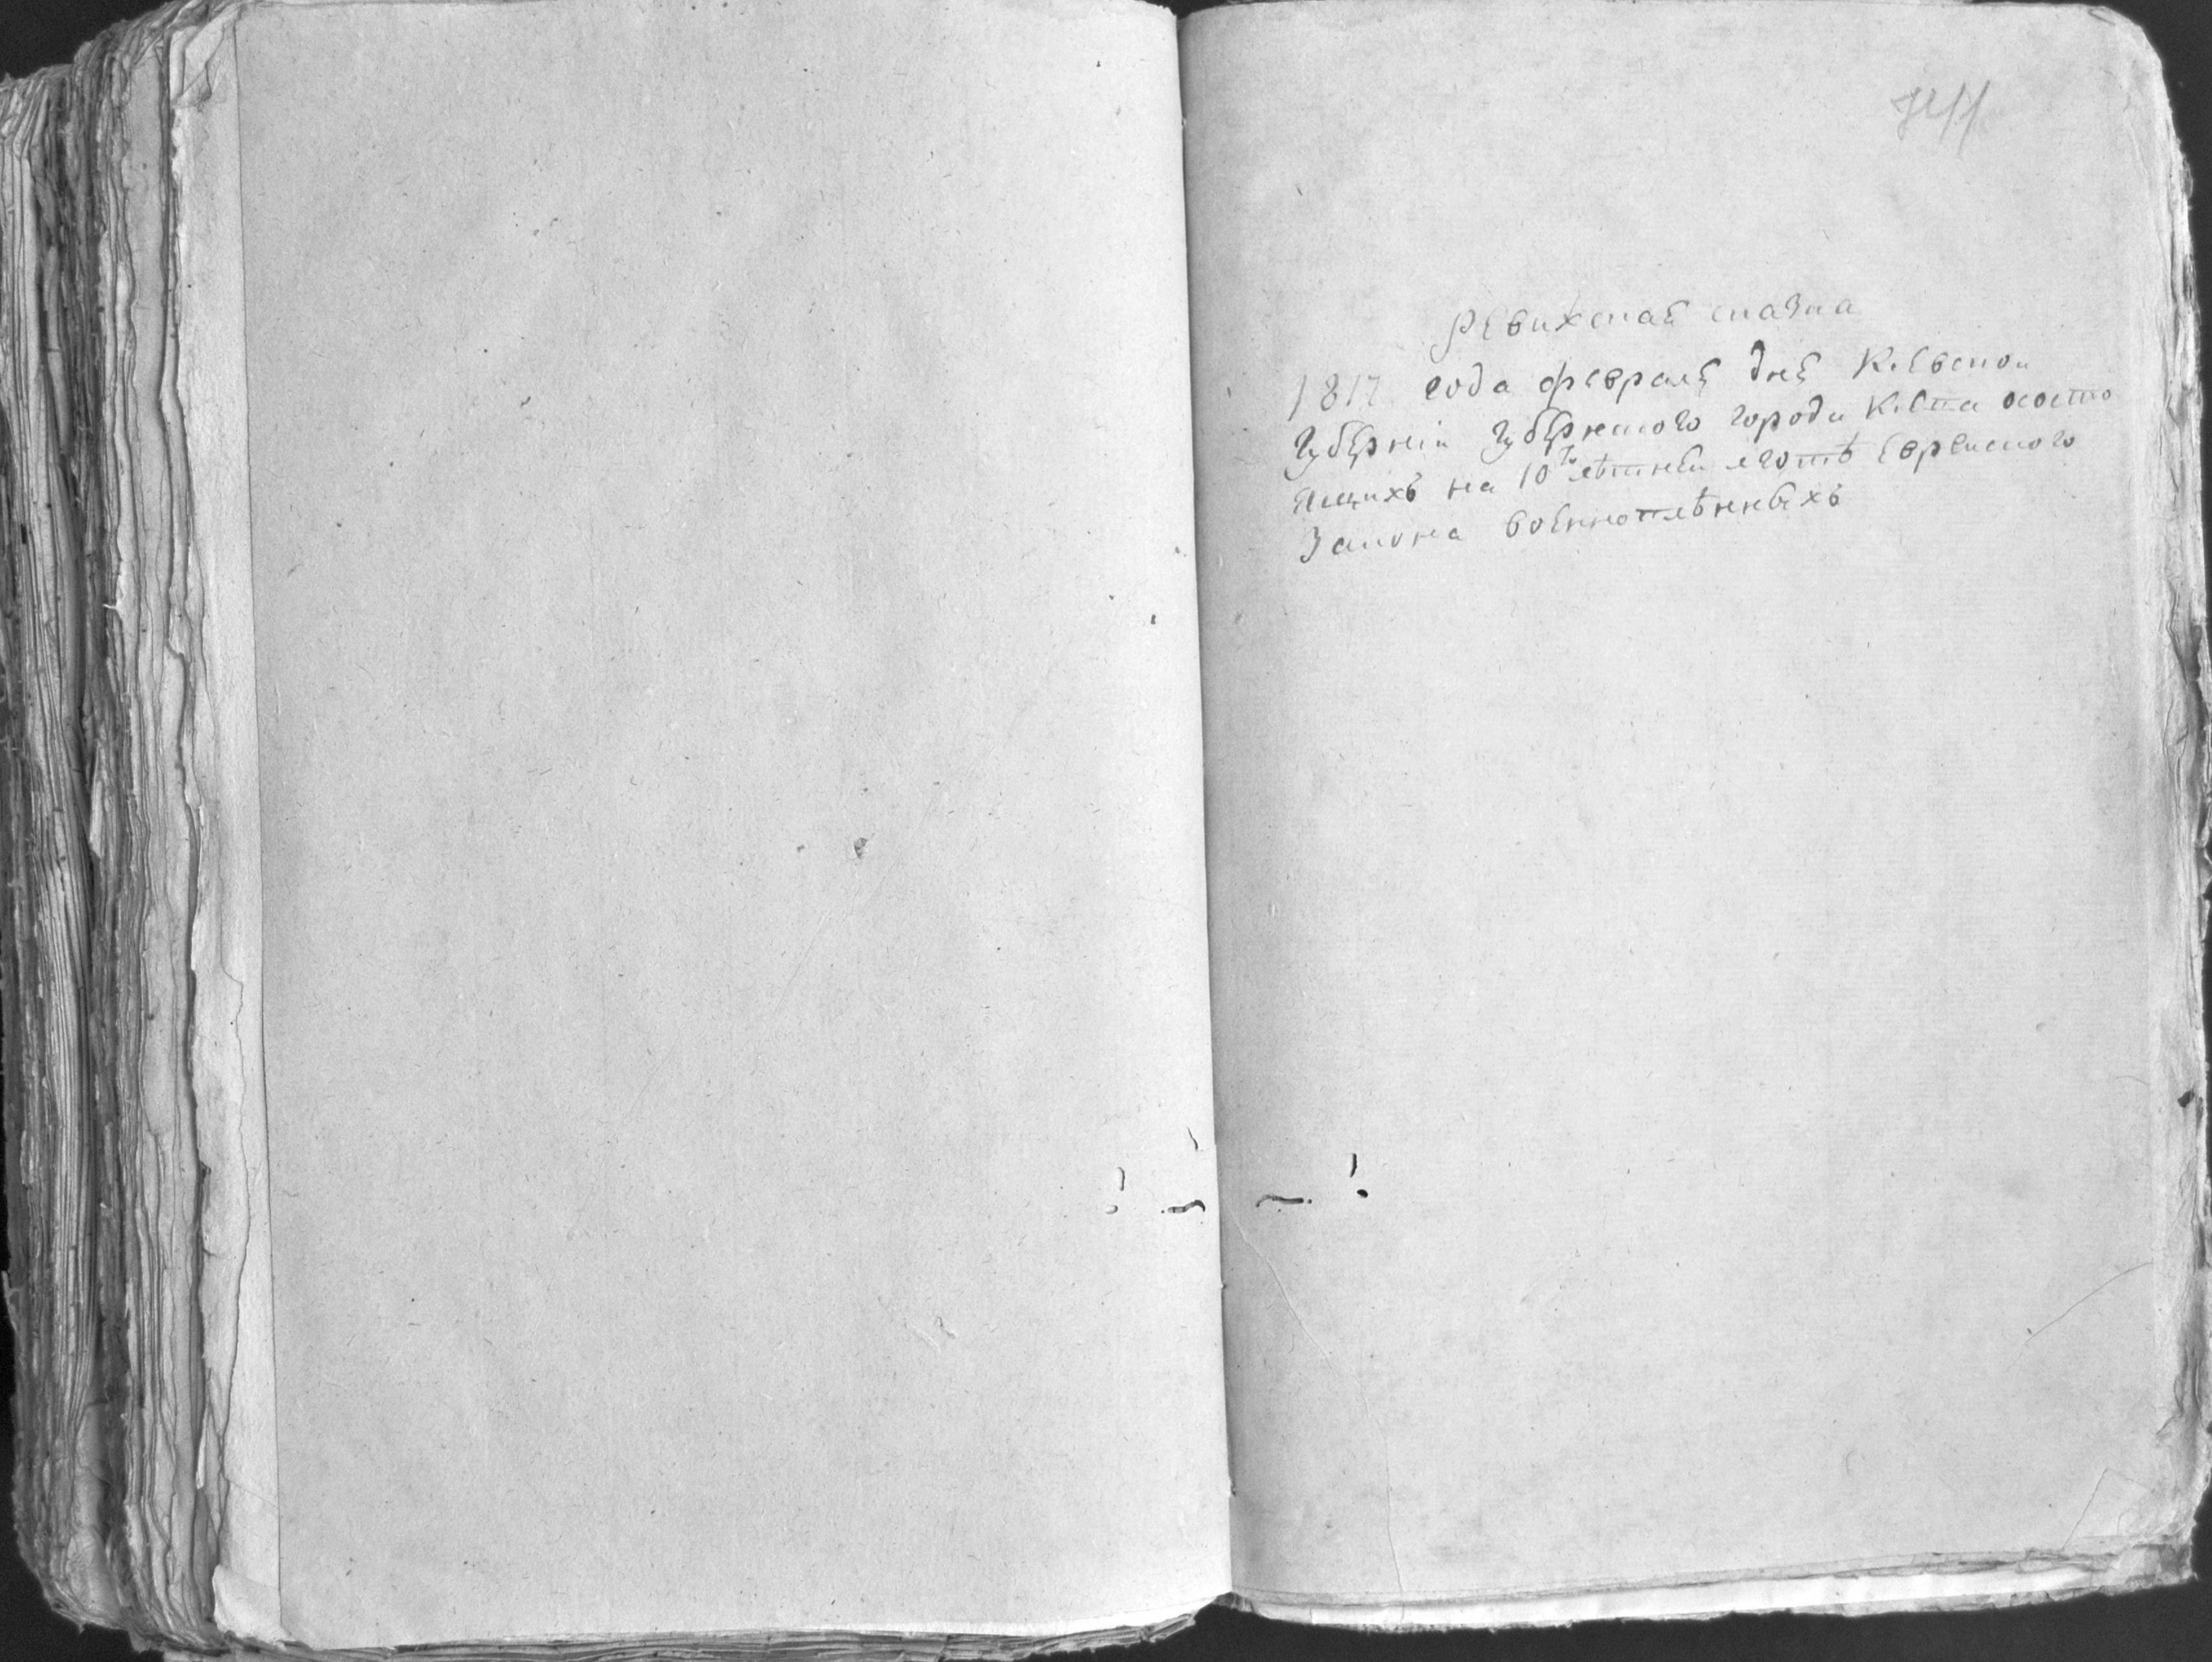 Ревижская сказка
1817 года февраля дня Киевской
Губерніи Губернского города Кіева состо
ящихъ на 10ти лѣтней льготѣ Еврейского
Закона военноплѣнныхъ